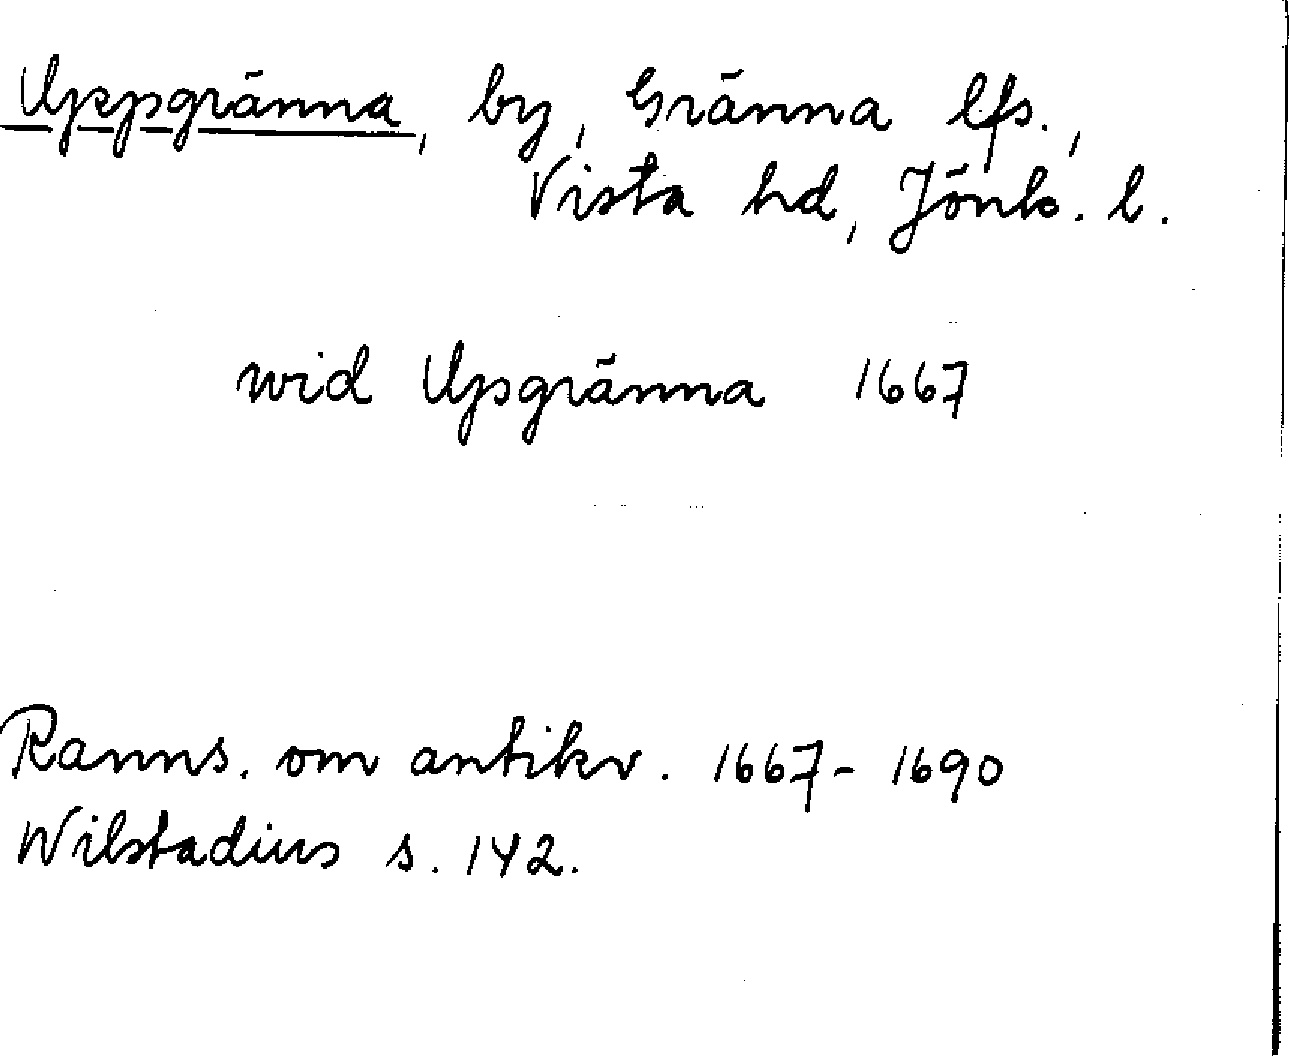 Uppgränna, by, Gränna lfs.,
Vista hd, Jönk. l.
wid Upgränna 1667
Ranns. om antikv. 1667-1690
Wilstadius s. 142.